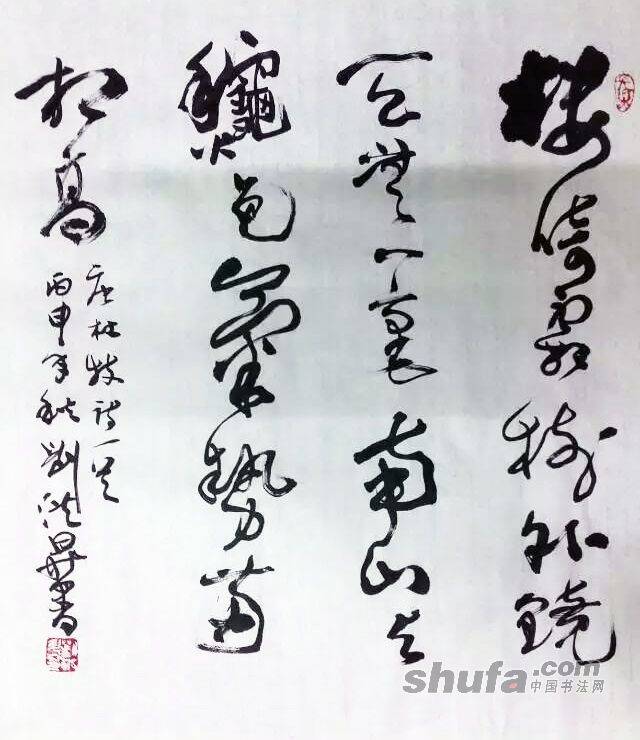 樓倚霜樹外鏡
天無一毫南山与
龝色氣勢兩
相高
唐杜牧詩一首
丙申年秋劉洪昇書
shufa.com
中国书法网